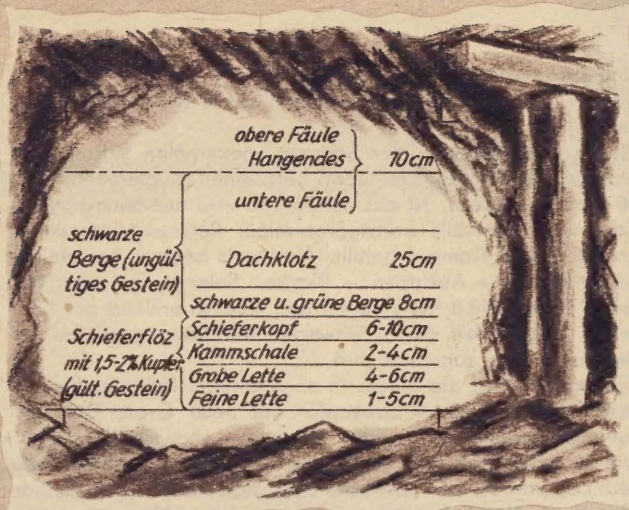 obere Fäule
Hangendes 70cm
untere Fäule
schwarze
Berge (ungül-
tiges Gestein)
Dachklotz 25cm
schwarze u. grüne Berge 8cm
Schieferflöz
mit 1,5-2% Kupfer
(gült. Gestein)
Schieferkopf 6-10cm
Kammschale 2-4cm
Grobe Lette 4-6cm
Feine Lette 1-5cm